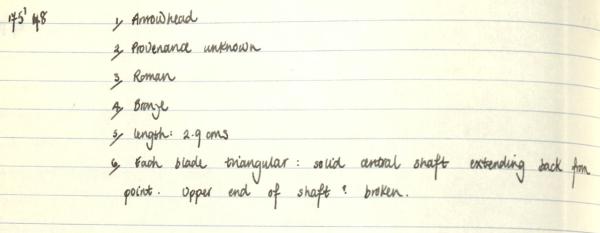 175' 48 1, Arrowhead
2, Provenance unknown
3, Roman
4, Bronze
5, length: 2.9 cms
6, Each blade triangular: solid central shaft extending back from
point. Upper end of shaft ? broken.